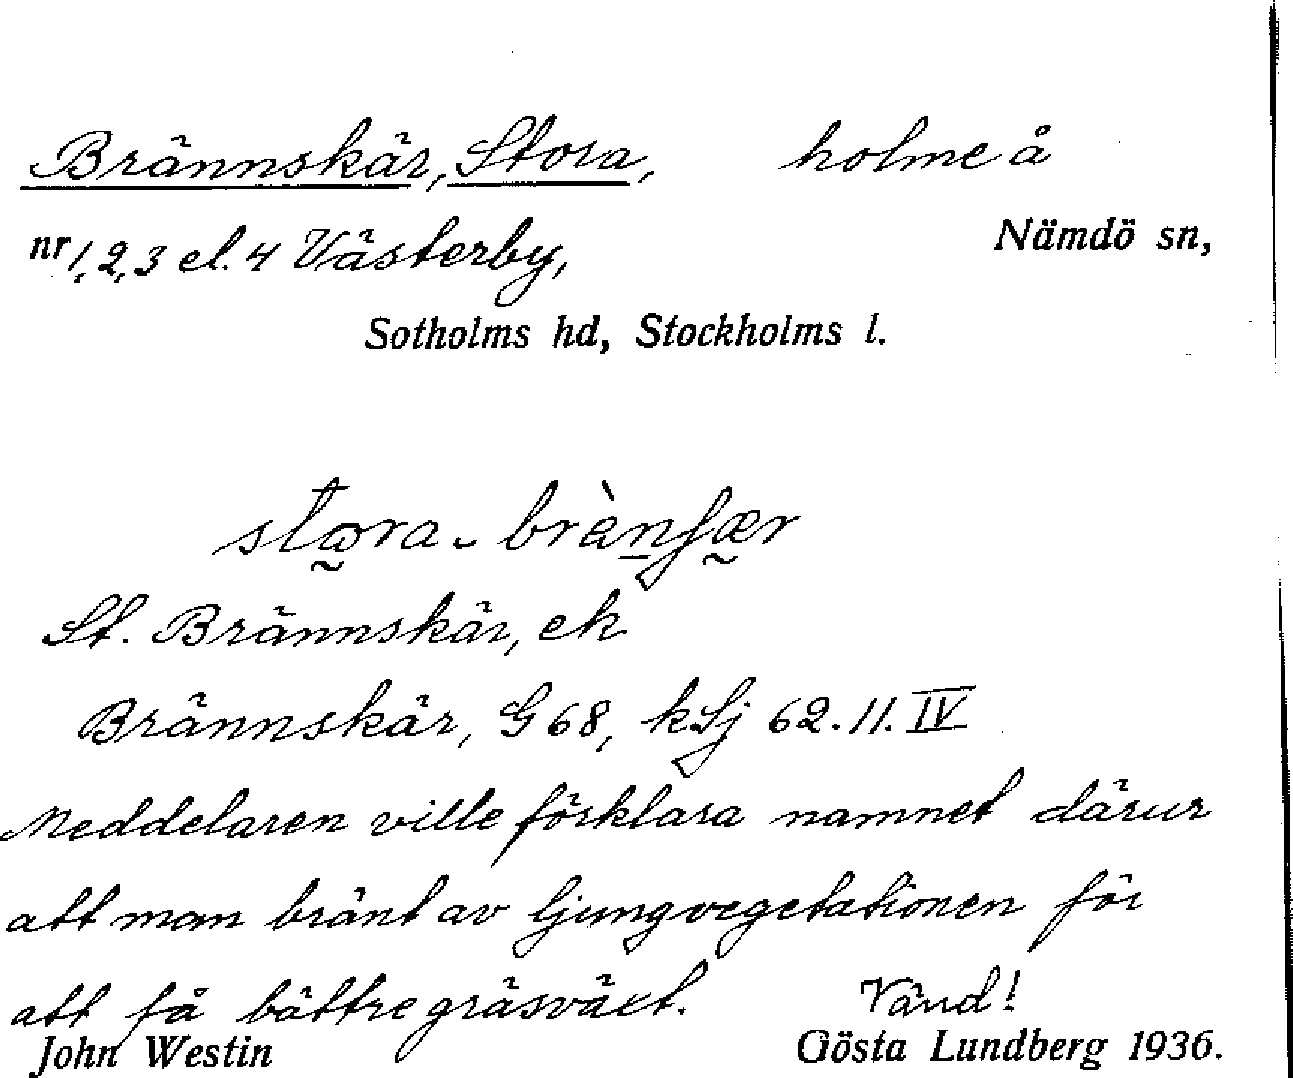 Brännskär, Stora, holme å
nr 1, 2, 3 el. 4 Västerby, Nämdö sn,
Sotholms hd, Stockholms l.
St. Brännskär, ek
Brännskär, G 68, kSj 62.11.IV
Meddelaren ville förklara namnet därur
att man bränt av ljungvegetationen för
att få bättre gräsväxt. Vänd!
John Westin Gösta Lundberg 1936.